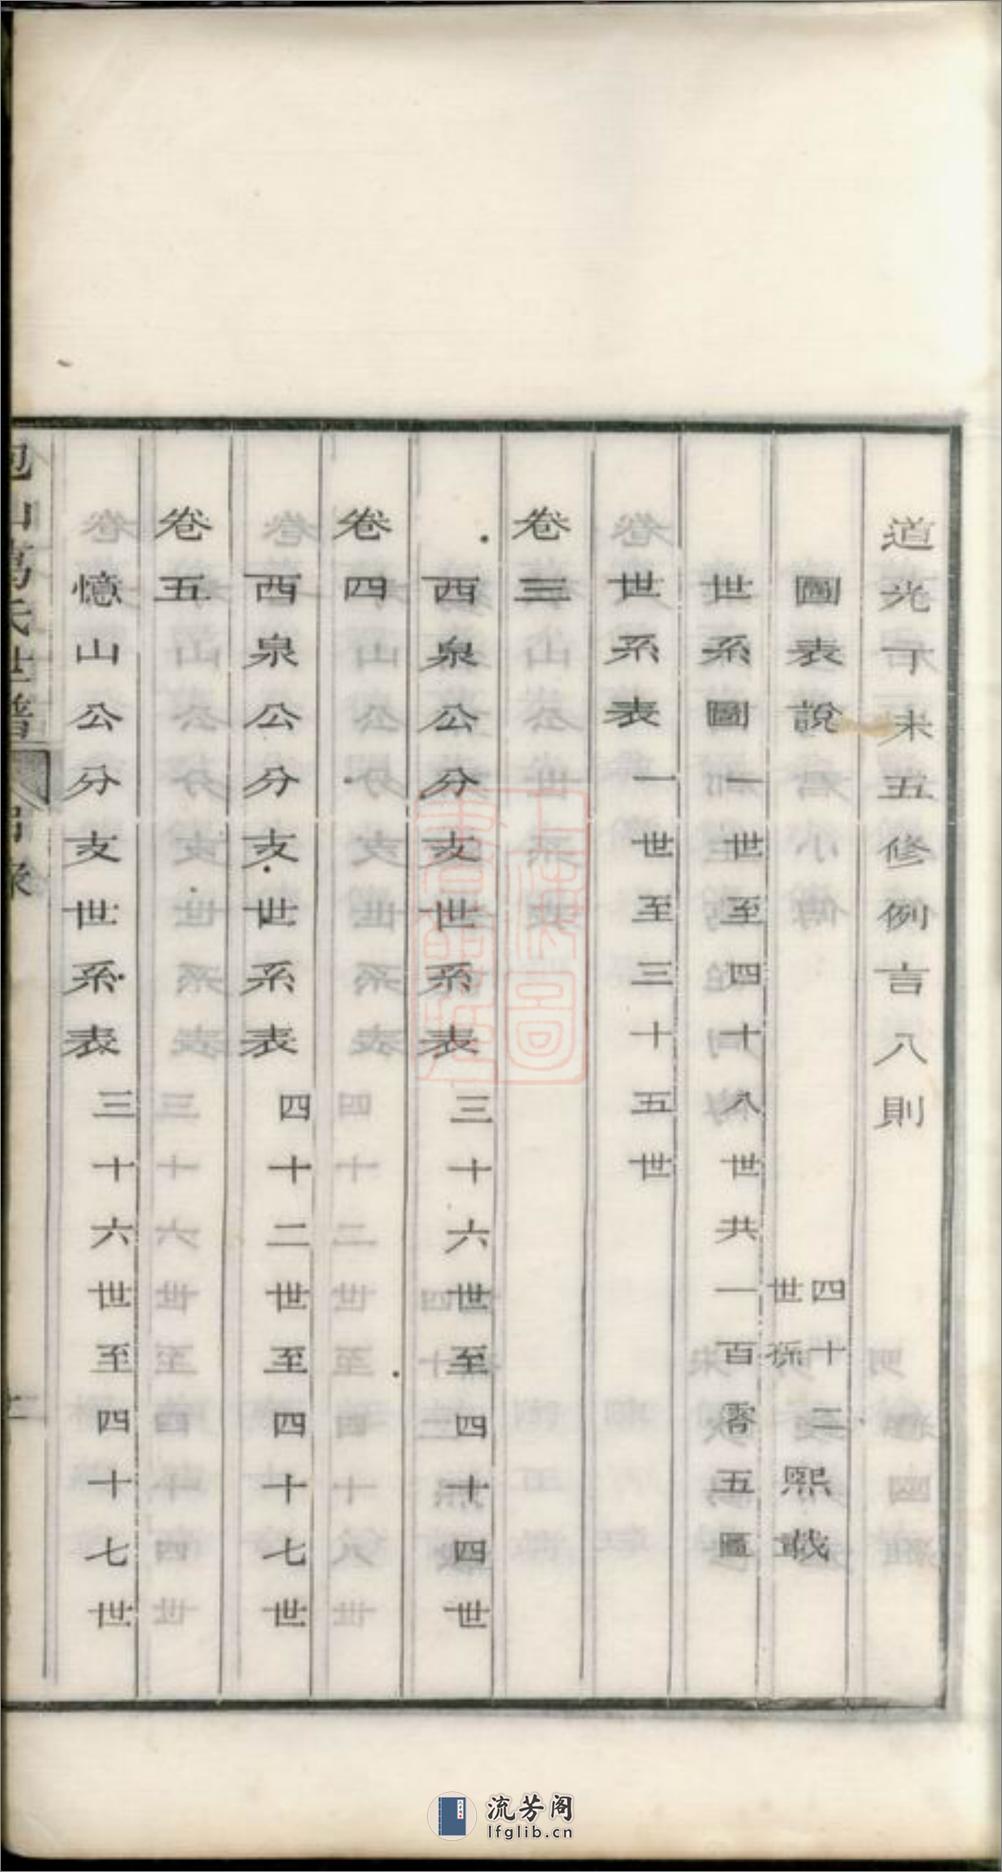 道光丁未五修例言八則
圖表說 四十二世孫熙載
世系圖 一世至四十八世共一百零五圖
世系表 一世至三十五世
卷三
西泉公分支世系表 三十六世至四十四世
卷四
西泉公分支世系表 四十二世至四十七世
卷五
憶山公分支世系表 三十六世至四十七世
流芳阁
lfglib.cn